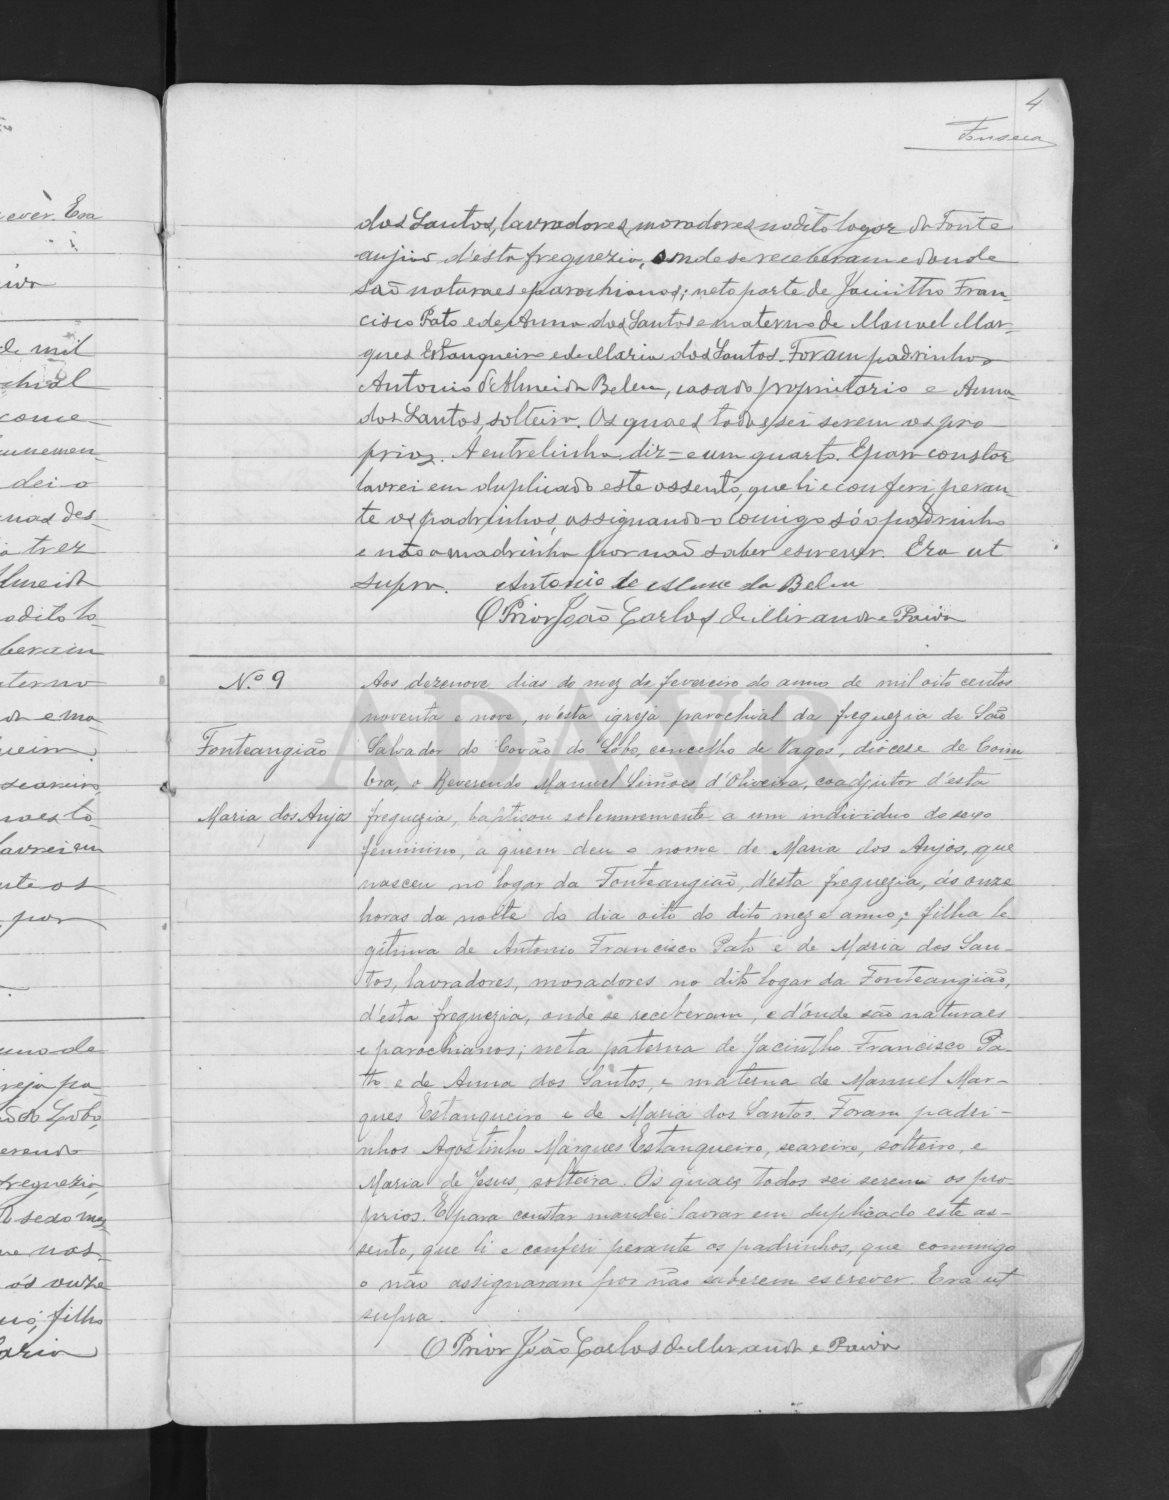 4
Fonseca
dos Santos, lavradores, moradores no dito logar da Fonte
anjião d'esta freguezia, onde se receberam e donde
são naturaes e parochianos; neto paterno de Jacintho Fran-
cisco Pato e de Anna dos Santos e materno de Manuel Mar-
ques Estanqueiro e de Maria dos Santos. Foram padrinhos
Antonio d'Almeida Belem, casado proprietario e Anna
dos Santos, solteira. Os quaes todos sei serem os pro-
prios. A entrelinha diz = e um quarto. E para constar
lavrei em duplicado este assento, que li e conferi peran-
te os padrinhos, assignando-o comigo só o padrinho
e não a madrinha por não saber escrever. Era ut
supra. Antonio de Almeida Belem
O Prior João Carlos de Miranda e Paiva
N.º 9
Fonteangião
Maria dos Anjos
Aos dezenove dias do mez de fevereiro do anno de mil oito centos
noventa e nove, n'esta igreja parochial da freguezia de São
Salvador do Covão do Lobo, concelho de Vagos, diocese de Coim-
bra, o Reverendo Manuel Simões d'Oliveira, coadjutor d'esta
freguezia, baptisou solemnemente a um individuo do sexo
feminino, a quem deu o nome de Maria dos Anjos, que
nasceu no logar da Fonteangião, d'esta freguezia, ás onze
horas da noite do dia oito do dito mez e anno; filha le
gitima de Antonio Francisco Pato e de Maria dos San-
tos, lavradores, moradores no dito logar da Fonteangião,
d'esta freguezia, onde se receberam, e d'onde são naturaes
e parochianos; neta paterna de Jacintho Francisco Pa-
to e de Anna dos Santos, e materna de Manuel Mar-
ques Estanqueiro e de Maria dos Santos. Foram padri-
nhos Agostinho Marques Estanqueiro, seareiro, solteiro, e
Maria de Jesus, solteira. Os quaes todos sei serem os pro-
prios. E para constar mandei lavrar em duplicado este as-
sento, que li e conferi perante os padrinhos, que commigo
o não assignaram por não saberem escrever. Era ut
supra.
O Prior João Carlos de Miranda e Paiva
ADAVR